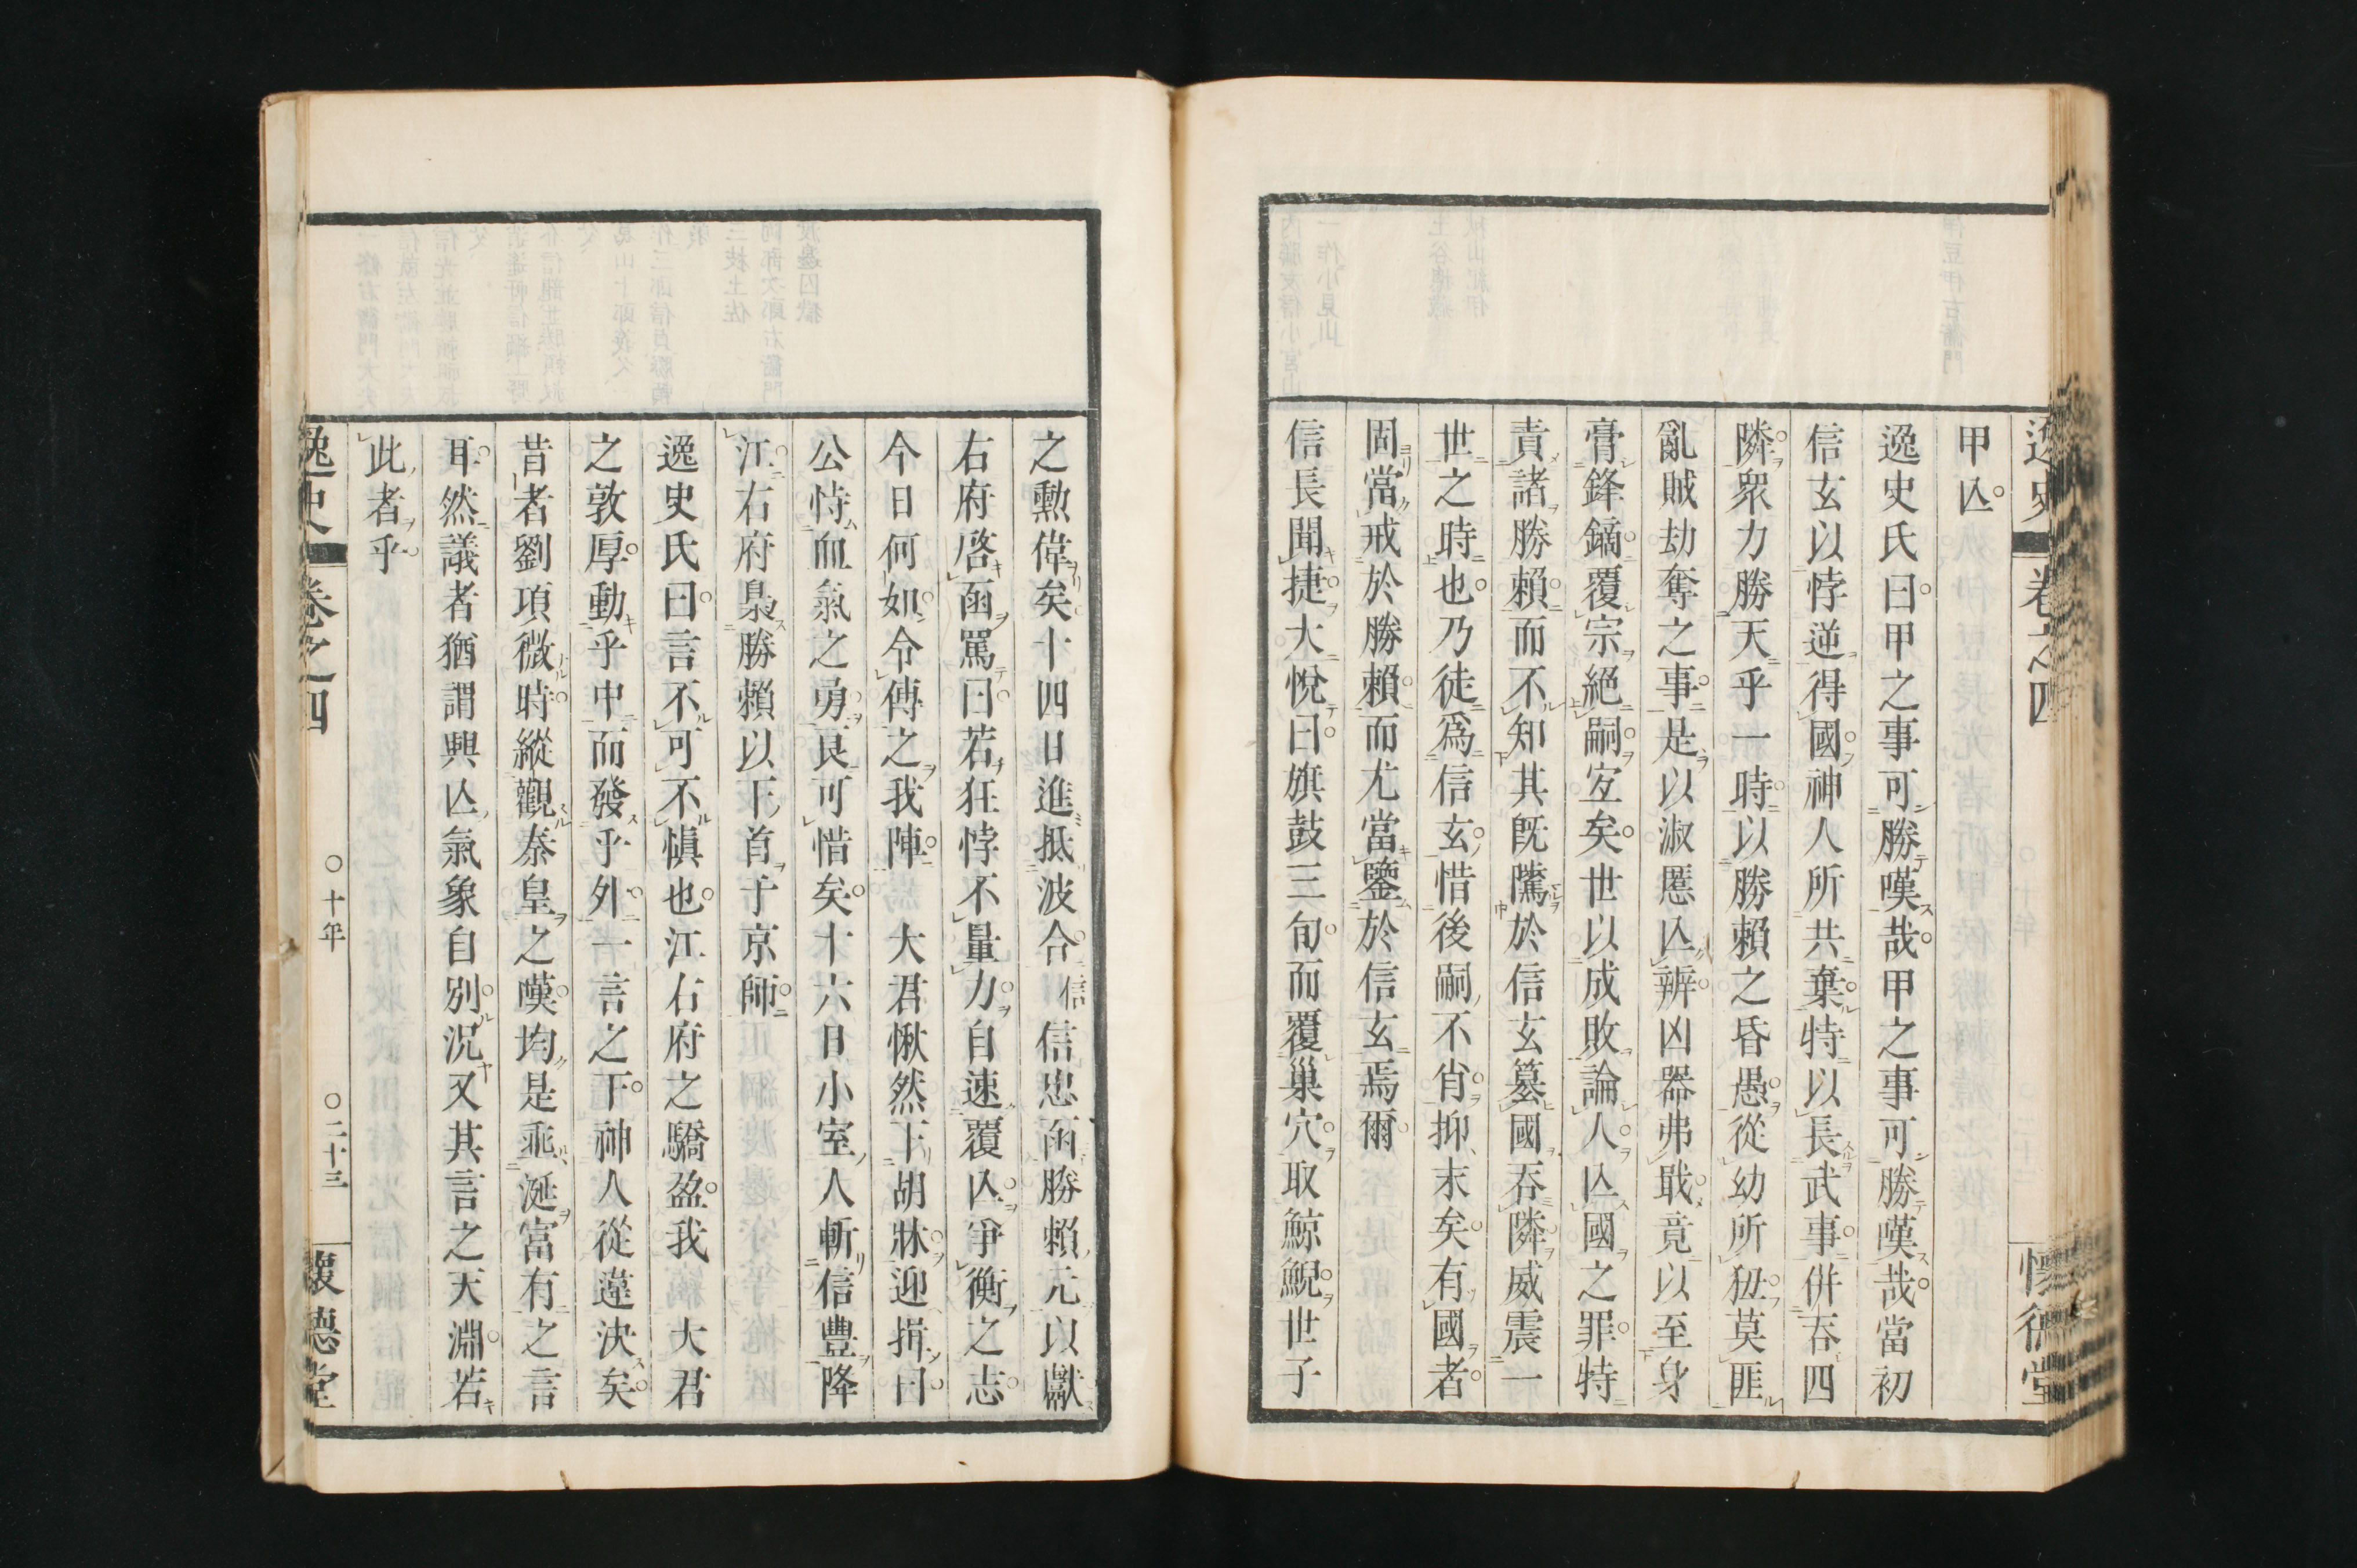 甲亾
逸史氏曰甲之事可勝嘆哉甲之事可勝嘆哉當初
信玄以悖逆得國神人所共棄特以長武事併吞四
隣衆力勝天乎一時以勝賴之昏愚從幼所狃莫匪
亂賊劫奪之事是以淑慝亾辨凶器弗戢竟以至身
膏鋒鏑覆宗絕嗣宐矣世以成敗論人亾國之罪特
責諸勝賴而不知其旣隲於信玄簒國吞隣威震一
世之時也乃徒爲信玄惜後嗣不肖抑末矣有國者
固當戒於勝賴而尤當鑒於信玄焉爾
信長聞捷大悅曰旗鼓三旬而覆巢穴取鯨鯢世子
之勳偉矣十四日進抵波合信信忠函勝賴元以獻
右府啓函罵曰若狂悖不量力自速覆亾爭衡之志
今日何如令傳之我陣 大君愀然下胡牀迎揖曰
公恃血氣之勇良可惜矣十六日小室人斬信豐降
江右府梟勝賴以下首于京師
逸史氏曰言不可不愼也江右府之驕盈我 大君
之敦厚動乎中而發乎外一言之下神人從違決矣
昔者劉項微時縱觀秦皇之嘆均是亟涎富有之言
耳然議者猶謂興亾氣象自別況又其言之天淵若
此者乎
逸史 卷之四 ○十年 ○二十三 懷德堂